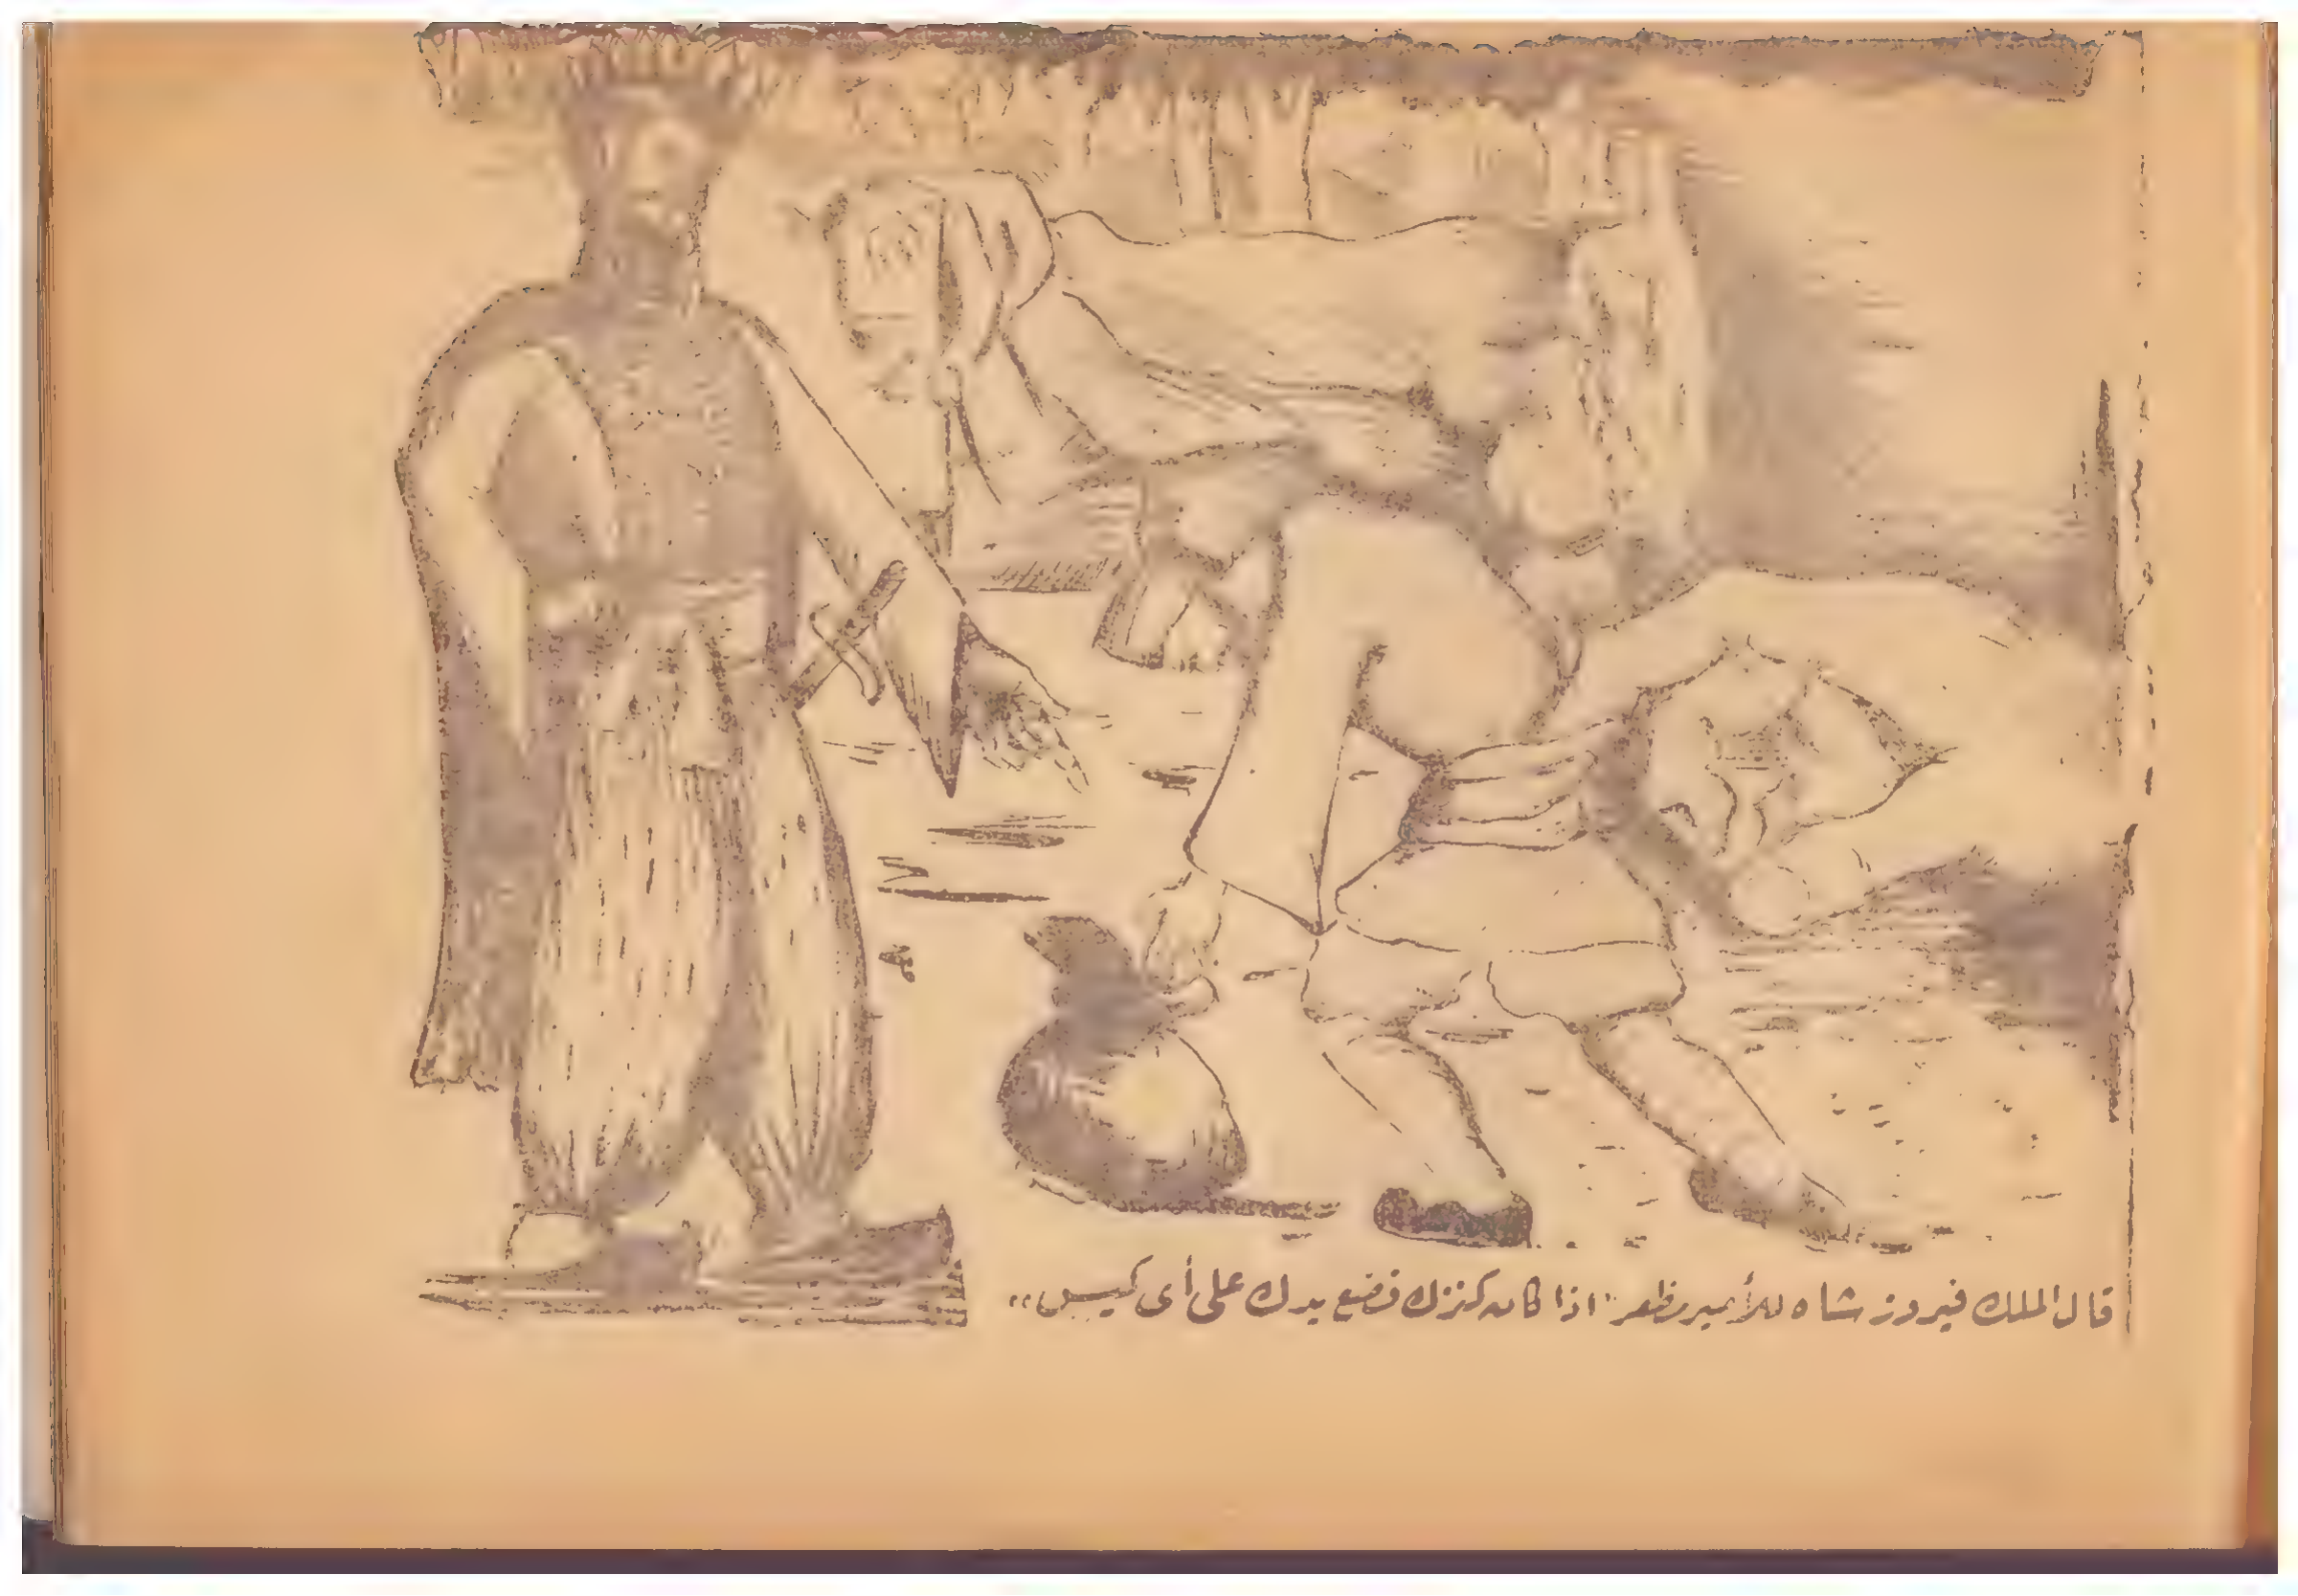 قال الملك فيروز شاه للأمير مظهر "اذا كان كنزك فضع يدك على أى كيس"